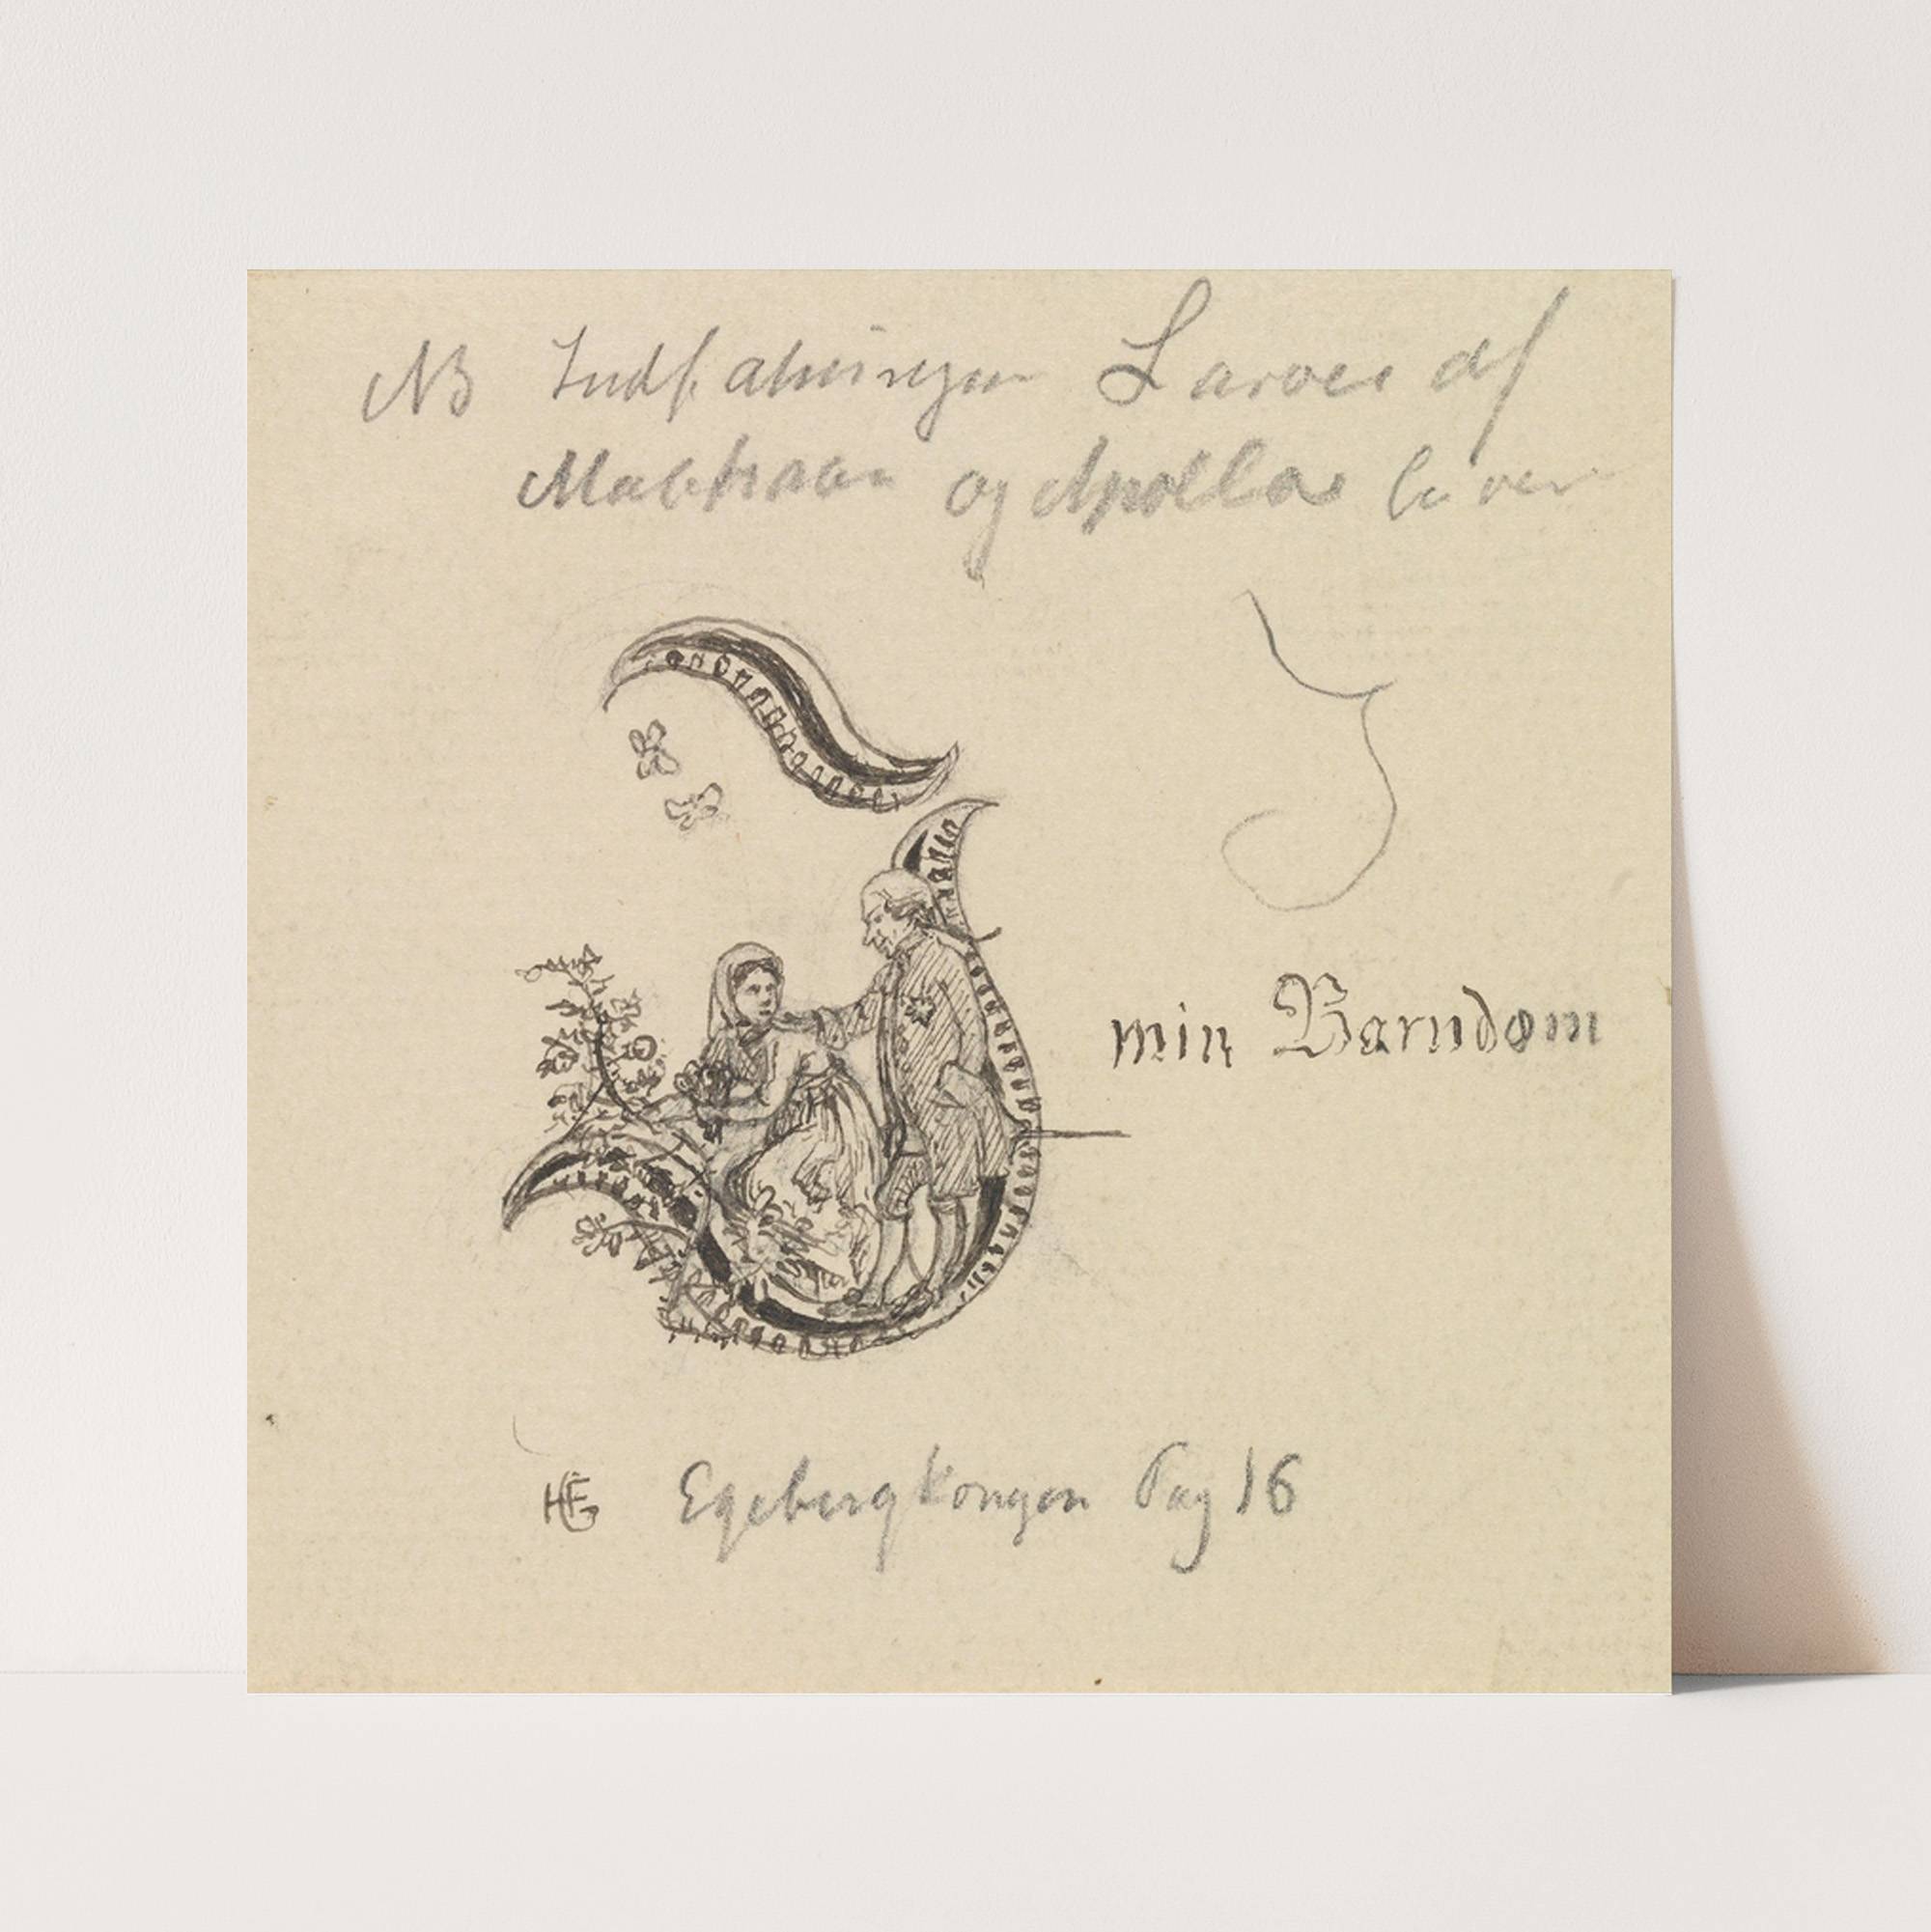 NB Indfatningen Larver af
og Apollo
min Barndom
HEG Egebergkongen Pag 16